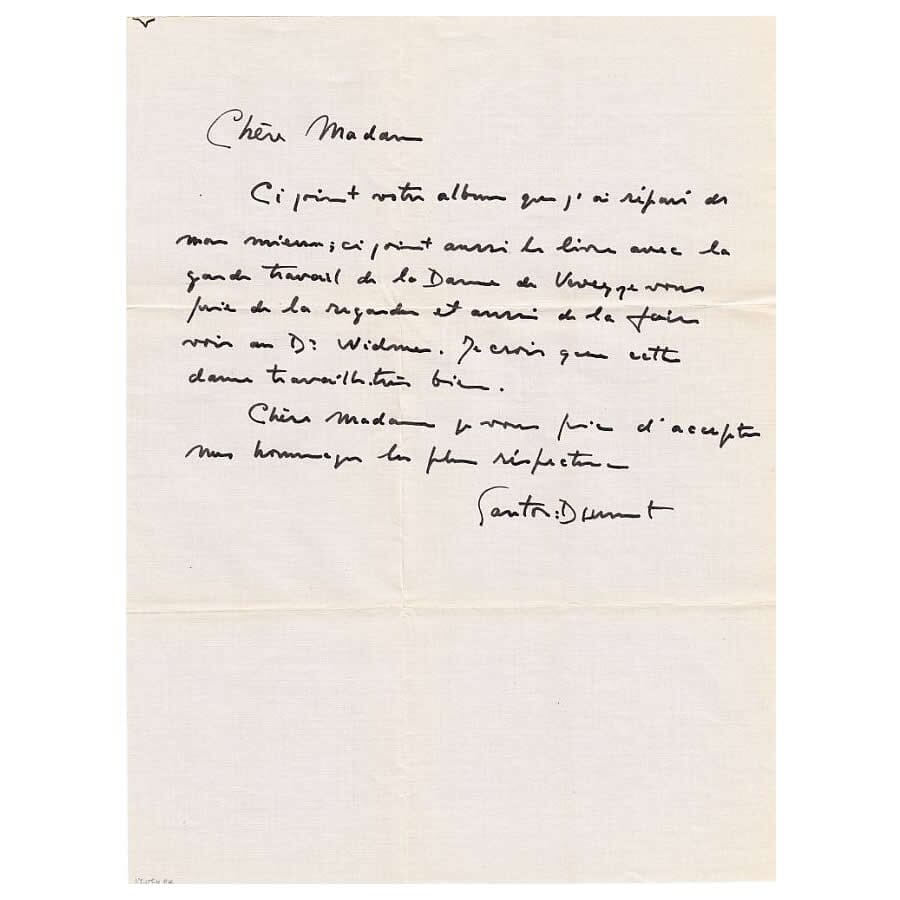 Chère Madame
Ci joint votre album que j'ai réparé de
mon mieux; ci joint aussi le livre avec la
garde travail de la Dame de Vevey je vous
prie de la regarder et aussi de la faire
voir au Dr Widmer. Je crois que cette
dame travaille très bien.
Chère Madame je vous prie d'accepter
mes hommages les plus réspectueux
Santos=Dumont